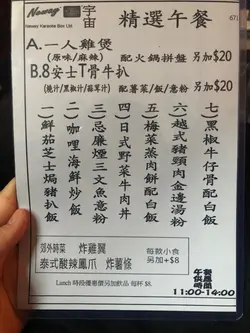 Neway
Neway Karaoke Box Ltd
宇宙
精選午餐
671
A.一人雞煲
(原味/麻辣) 配火鍋拼盤 另加$20
B.8安士T骨牛扒
(燒汁/黑椒汁/蒜茸汁) 配薯菜/飯/意粉 另加$30
一 鮮茄芝士焗豬扒飯
二 咖哩海鮮炒飯
三 忌廉煙三文魚意粉
四 日式野菜牛肉丼
五 梅菜蒸肉餅配白飯
六 越式豬頸肉金邊湯粉
七 黑椒牛仔骨配白飯
郊外時菜 炸雞翼
泰式酸辣鳳爪 炸薯條
每款小食
另加+$8
Lunch 時段優惠價另加飲品 每杯 $8.
午餐
供應
時間
11:00-14:00